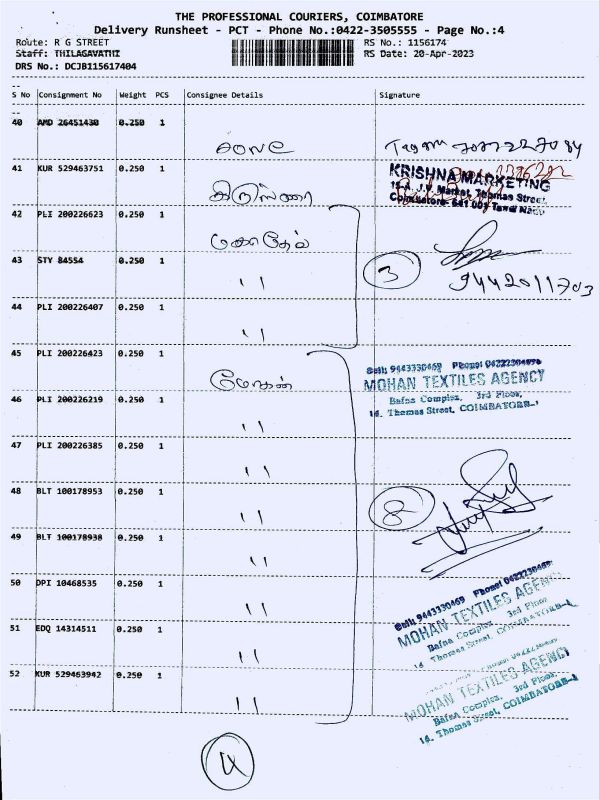 THE PROFESSIONAL COURIERS, COIMBATORE
Delivery Runsheet - PCT - Phone No.:0422-3505555 - Page No.:4
Route: R G STREET
RS No.: 1156174
Staff: THILAGAVATHI
RS Date: 20-Apr-2023
DRS No.: DCJB115617404
S No Consignment No Weight PCS Consignee Details Signature
40 AMD 26451430 0.250 1
41 KUR 529463751 0.250 1
KRISHNA MARKETING
15-A, J.V. Market, Thomas Street,
Coimbatore- 641 001 Tamil Nadu
42 PLI 200226623 0.250 1
43 STY 84554 0.250 1 " 3
9442011703
44 PLI 200226407 0.250 1 "
45 PLI 200226423 0.250 1 மோகன்
MOHAN TEXTILES AGENCY
Bafna Complex, 3rd Floor,
14, Thomas Street, COIMBATORE-1
46 PLI 200226219 0.250 1 "
47 PLI 200226385 0.250 1 "
48 BLT 100178953 0.250 1 " 8
49 BLT 100178938 0.250 1 "
50 DPI 10468535 0.250 1 "
Cell: 9443330469
MOHAN TEXTILES AGENCY
Bafna Complex, 3rd Floor
14 Thomas Street, COIMBATORE-1
51 EDQ 14314511 0.250 1 "
52 KUR 529463942 0.250 1 "
MOHAN TEXTILES AGENCY
Bafna Complex, 3rd Floor,
14, Thomas Street, COIMBATORE-1